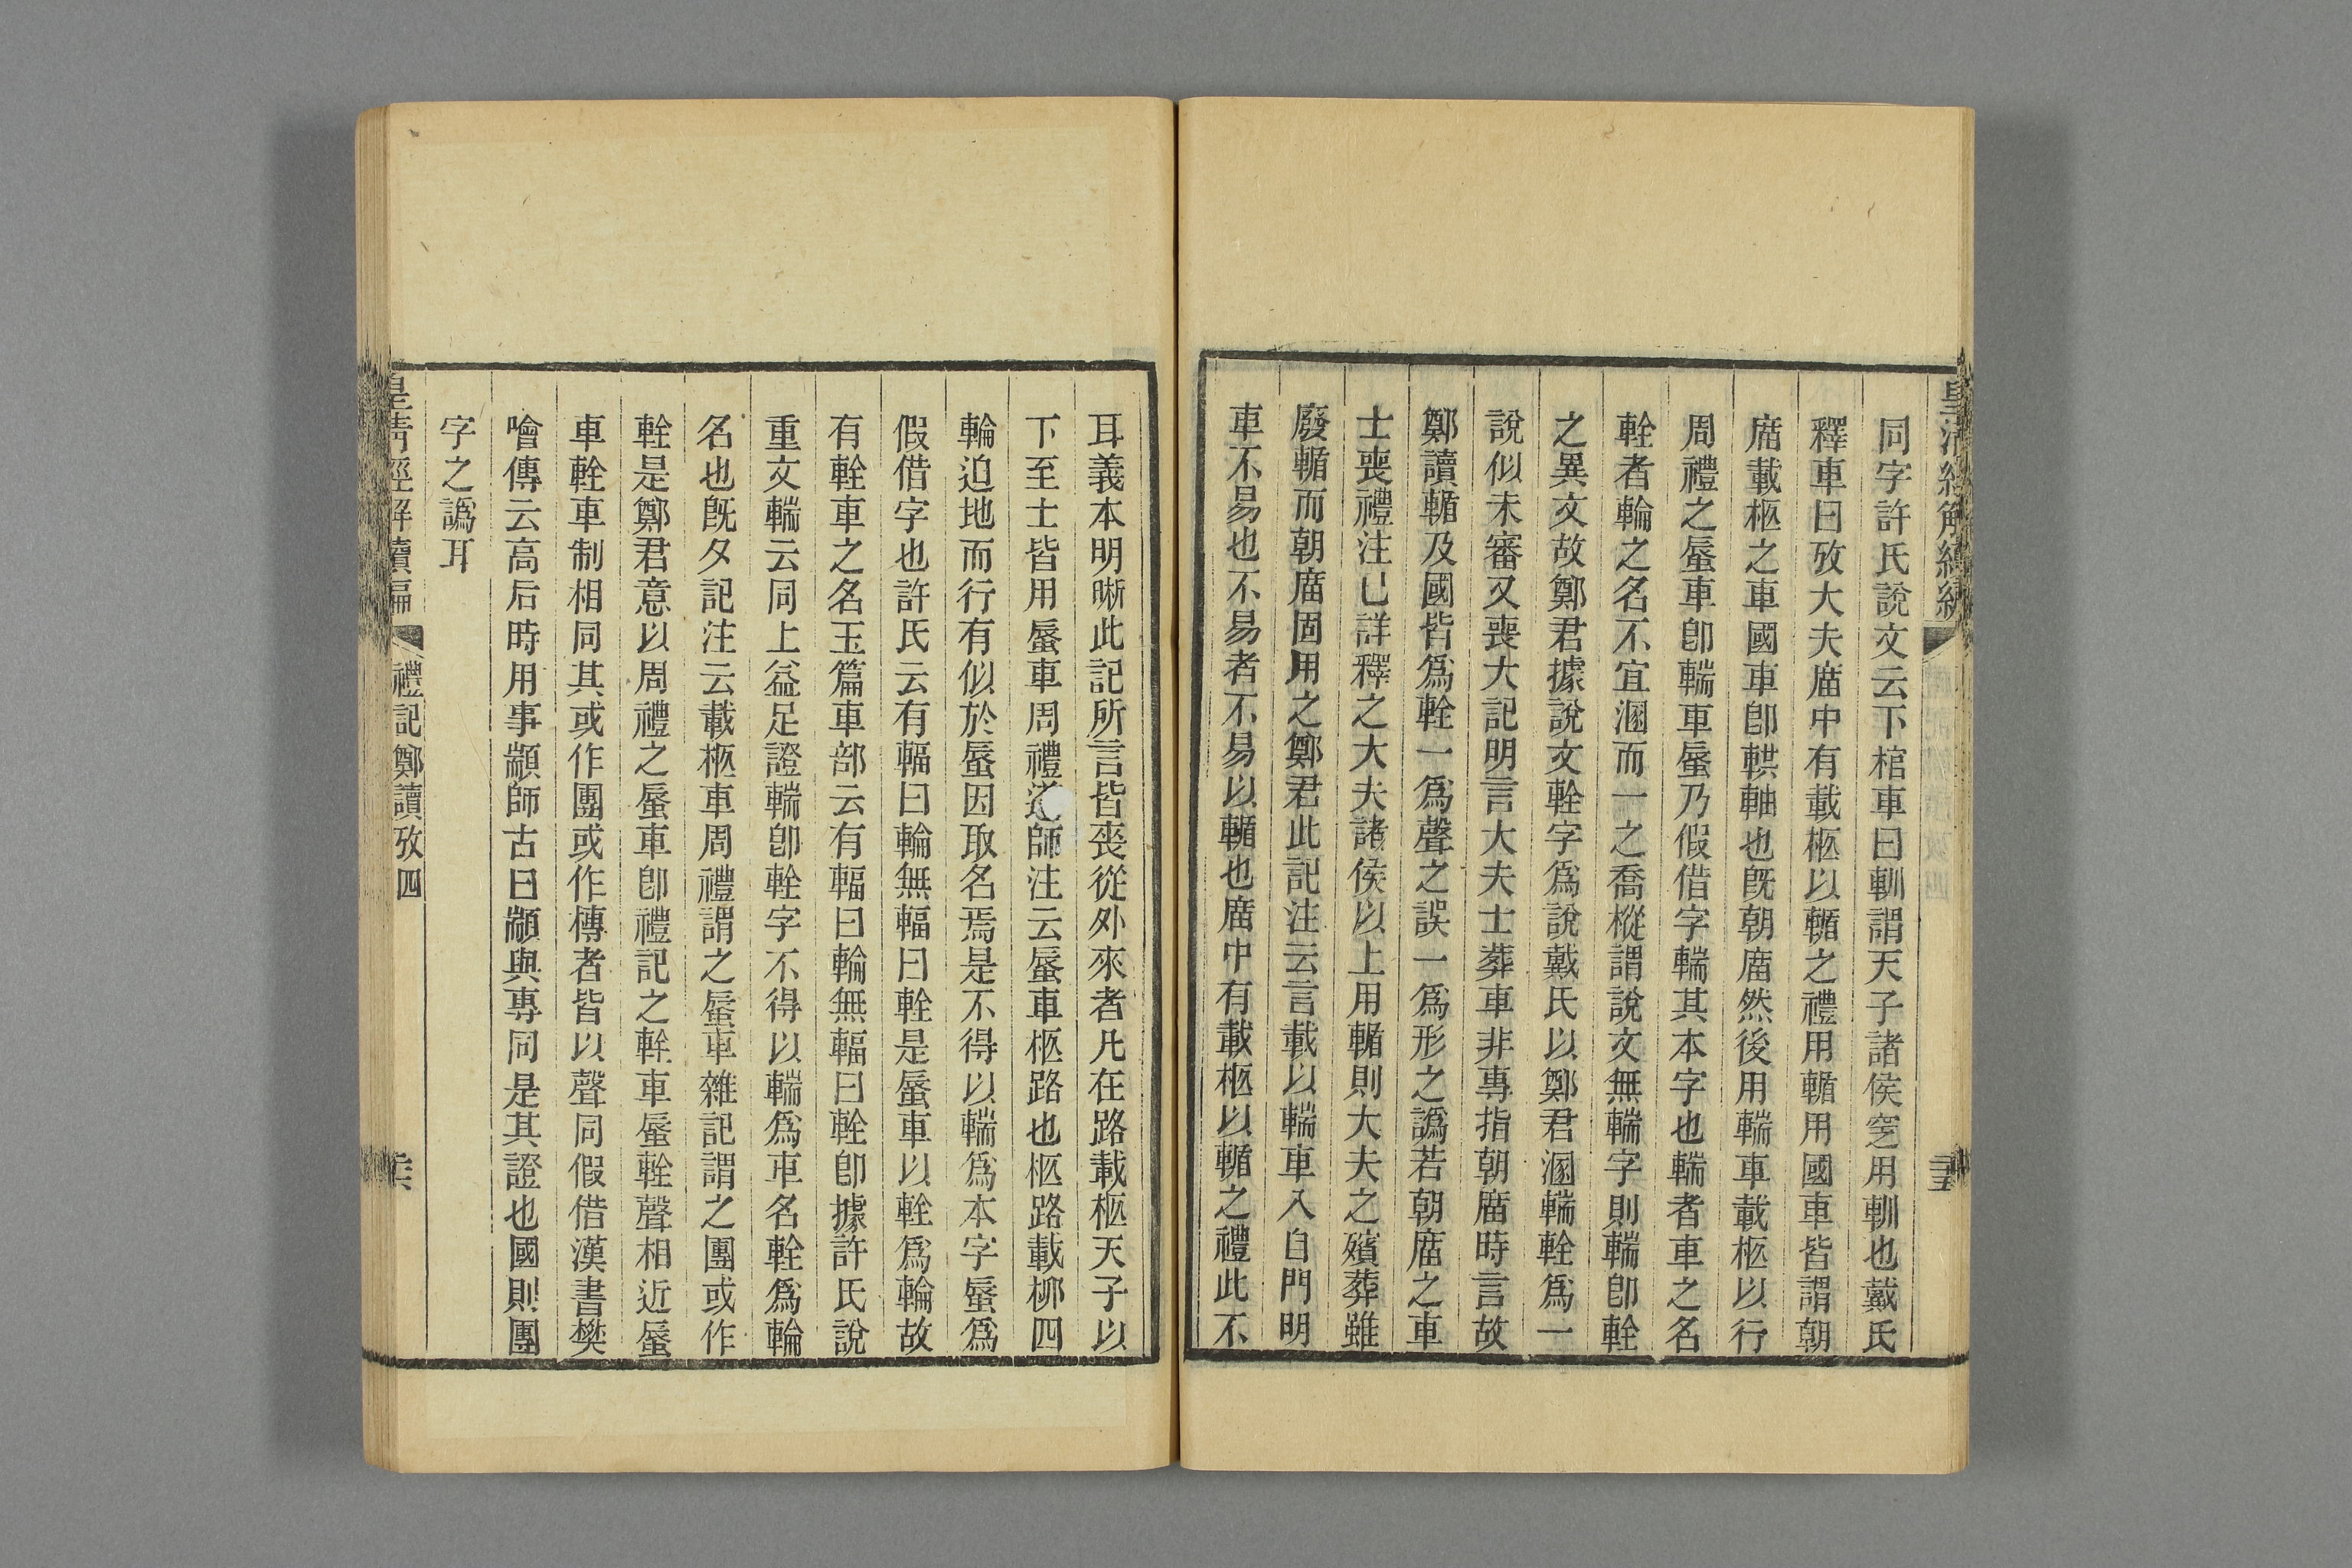 皇清經解續編
同字許氏說文云下棺車曰輁謂天子諸侯窆用輁也戴氏
釋車曰攷大夫廟中有載柩以輴之禮用輴用國車皆謂朝
廟載柩之車國車卽輁軸也旣朝廟然後用輲車載柩以行
周禮之蜃車卽輲車蜃乃假借字輲其本字也輲者車之名
輇者輪之名不宜溷而一之喬樅謂說文無輲字則輲卽輇
之異文故鄭君據說文輇字爲說戴氏以鄭君溷輲輇爲一
說似未審又喪大記明言大夫士葬車非專指朝廟時言故
鄭讀輴及國皆爲輇一爲聲之誤一爲形之譌若朝廟之車
士喪禮注已詳釋之大夫諸侯以上用輴則大夫之殯葬雖
廢輴而朝廟固用之鄭君此記注云言載以輲車入自門明
車不易也不易者不易以輴也廟中有載柩以輴之禮此不
耳義本明晣此記所言皆喪從外來者凡在路載柩天子以
下至士皆用蜃車周禮遂師注云蜃車柩路也柩路載柳四
輪迫地而行有似於蜃因取名焉是不得以輲爲本字蜃爲
假借字也許氏云有輻曰輪無輻曰輇是蜃車以輇爲輪故
有輇車之名玉篇車部云有輻曰輪無輻曰輇卽據許氏說
重文輲云同上益足證輲卽輇字不得以輲爲車名輇爲輪
名也旣夕記注云載柩車周禮謂之蜃車雜記謂之團或作
輇是鄭君意以周禮之蜃車卽禮記之輇車蜃輇聲相近蜃
車輇車制相同其或作團或作槫者皆以聲同假借漢書樊
噲傳云高后時用事顓師古曰顓與專同是其證也國則團
字之譌耳
皇清經解續編
禮記鄭讀攷四